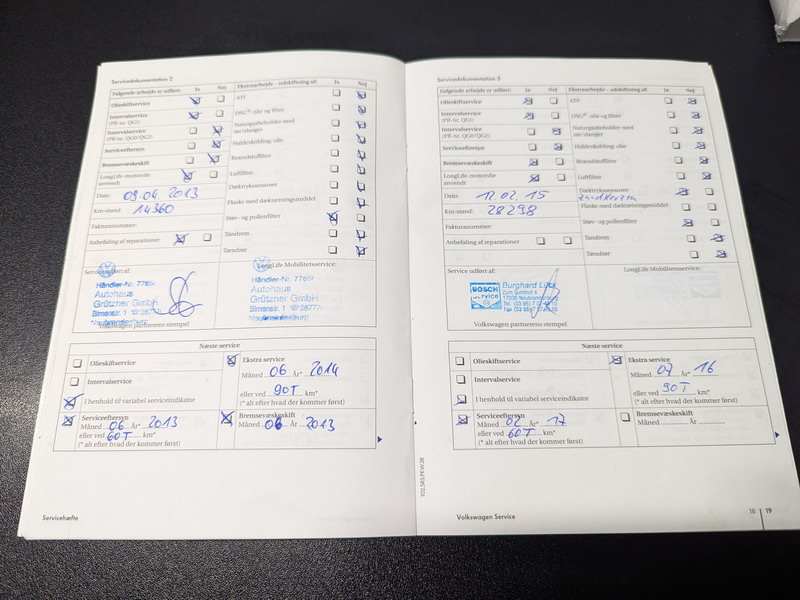 Servicedokumentation 2
Følgende arbejde er udført: Ja Nej
Olieskiftservice
Intervalservice
(PR-nr. QG1)
Intervalservice
(PR-nr. QG0/QG2)
Serviceeftersyn
Bremsevæskeskift
LongLife-motorolie
anvendt
Dato: 09.04.2013
Km-stand: 14360
Fakturanummer:
Anbefaling af reparationer
Ekstraarbejde - udskiftning af: Ja Nej
ATF
DSG®-olie og filter
Naturgasbeholder med
rør/slanger
Haldexkobling: olie
Brændstoffilter
Luftfilter
Dæktrykssensorer
Flaske med dæktætningsmiddel
Støv- og pollenfilter
Tandrem
Tændrør
Service udført af:
LongLife Mobilitetsservice:
Händler-Nr. 7765
Autohaus
Grützner GmbH
Neubrandenburg
Händler-Nr. 7765
Autohaus
Grützner GmbH
Neubrandenburg
Volkswagen partnerens stempel
Næste service
Olieskiftservice
Intervalservice
I henhold til variabel serviceindikator
Serviceeftersyn
Måned 06 År* 2013
eller ved 60T km*
(* alt efter hvad der kommer først)
Ekstra service
Måned 06 År* 2014
eller ved 90T km*
(* alt efter hvad der kommer først)
Bremsevæskeskift
Måned 06 År 2013
Servicehæfte
Servicedokumentation 3
Følgende arbejde er udført: Ja Nej
Olieskiftservice
Intervalservice
(PR-nr. QG1)
Intervalservice
(PR-nr. QG0/QG2)
Serviceeftersyn
Bremsevæskeskift
LongLife-motorolie
anvendt
Dato: 12.02.15
Km-stand: 28298
Fakturanummer:
Anbefaling af reparationer
Ekstraarbejde - udskiftning af: Ja Nej
ATF
DSG®-olie og filter
Naturgasbeholder med
rør/slanger
Haldexkobling: olie
Brændstoffilter
Luftfilter
Dæktrykssensorer
Zündkerzen
Flaske med dæktætningsmiddel
Støv- og pollenfilter
Tandrem
Tændrør
Service udført af:
LongLife Mobilitetsservice:
BOSCH
Service
Burghard Lück
17036 Neubrandenburg
Volkswagen partnerens stempel
Næste service
Olieskiftservice
Intervalservice
I henhold til variabel serviceindikator
Serviceeftersyn
Måned 02 År* 17
eller ved 60T km*
(* alt efter hvad der kommer først)
Ekstra service
Måned 02 År* 16
eller ved 90T km*
(* alt efter hvad der kommer først)
Bremsevæskeskift
Måned År
Volkswagen Service
18 19